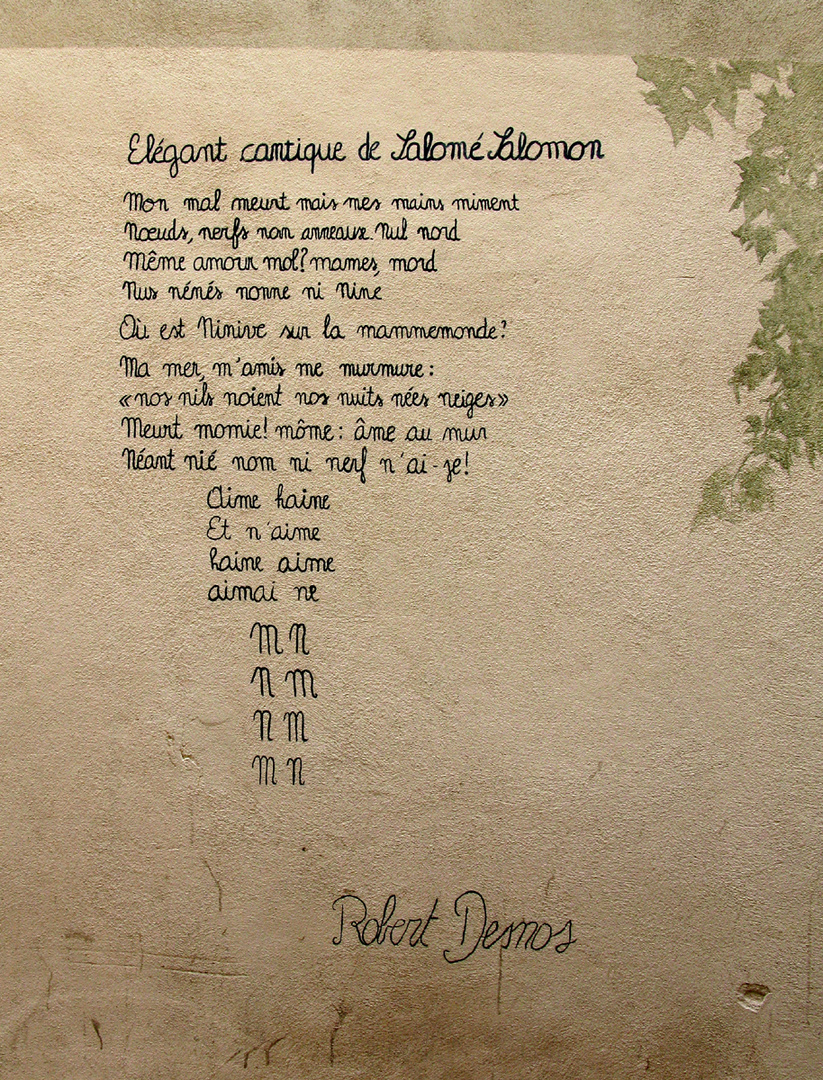 Elégant cantique de Salomé Salomon
Mon mal meurt mais mes mains miment
Nœuds, nerfs non anneaux. Nul nord
Même amour mol? mames, mord
Nus nénés nonne ni Nine
Où est Ninive sur la mammemonde?
Ma mer, m'amis me murmure:
«nos nils noient nos nuits nées neiges»
Meurt momie! môme: âme au mur
Néant nié nom ni nerf n'ai-je!
Aime haine
Et n'aime
haine aime
aimai ne
M N
N M
N M
M N
Robert Desnos